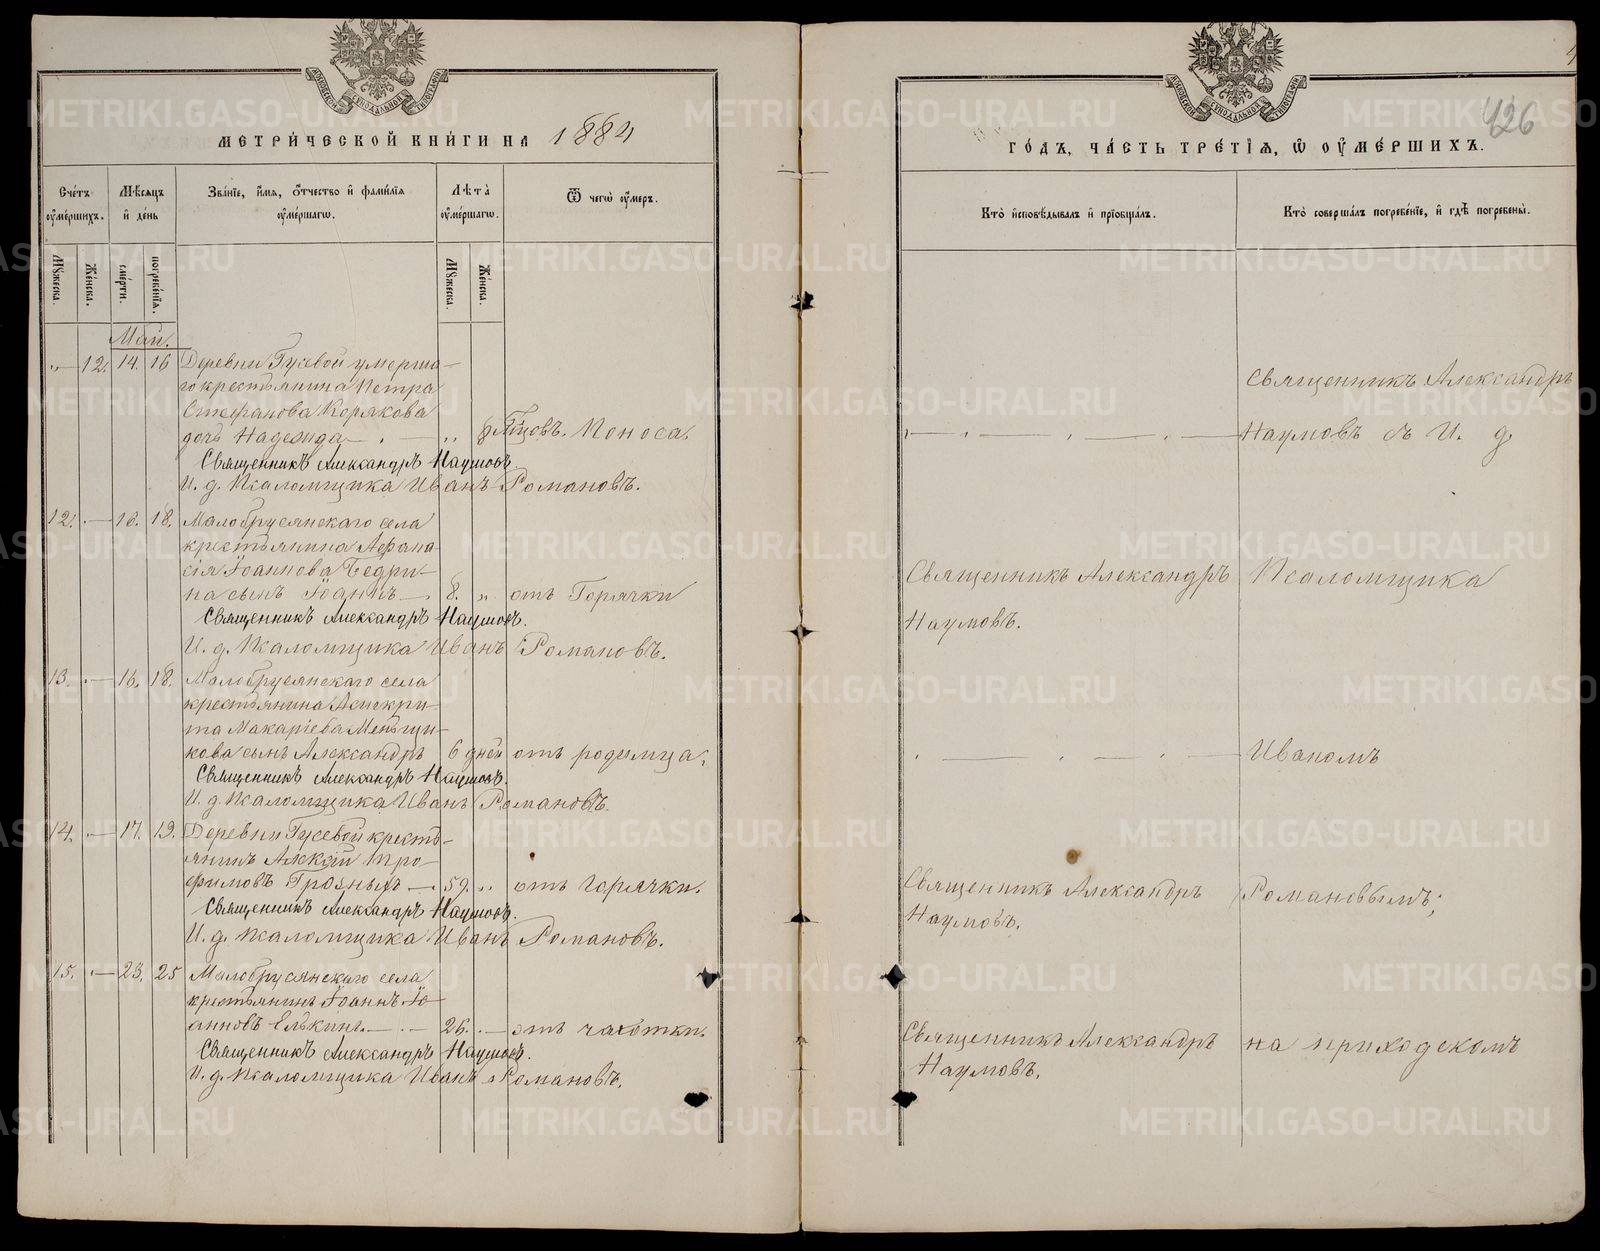 МЕТРИЧЕСКОЙ КНИГИ НА 1884
Счетъ умершихъ.
Мѣсяцъ и день
Званіе, имя, отчество и фамилія умершагѡ.
Лѣта умершагѡ.
Ѿ чегѡ умеръ.
Мужеска.
Женска.
смерти.
погребенія.
Мужеска.
Женска.
Май.
„ — 12. 14. 16 Деревни Гусевой умерша-
го крестьянина Петра
Стефанова Корякова
дочь Надежда — „ Поноса.
Священникъ Александръ Наумовъ.
И. д. Псаломщика Иванъ Романовъ.
12. — 16. 18. Малобрусянскаго села
крестьянина Афана-
сія Іоаннова Бедри-
на сынъ Іоаннъ — 8. „ отъ Горячки
Священникъ Александръ Наумовъ.
И. д. Псаломщика Иванъ Романовъ.
13. — 16. 18. Малобрусянскаго села
крестьянина Асинкри-
та Макаріева Меньщи-
кова сынъ Александръ 6 дней отъ родимца.
Священникъ Александръ Наумовъ.
И. д. Псаломщика Иванъ Романовъ.
14. — 17. 19. Деревни Гусевой кресть-
янинъ Алексѣй Тро-
фимовъ Грозныхъ — 59. „ отъ горячки.
Священникъ Александръ Наумовъ.
И. д. Псаломщика Иванъ Романовъ.
15. — 23. 25 Малобрусянскаго села
крестьянинъ Іоаннъ Іо-
анновъ Елькинъ — 26. — отъ чахотки.
Священникъ Александръ Наумовъ.
И. д. Псаломщика Иванъ Романовъ.
426
ГОДЪ, ЧАСТЬ ТРЕТІЯ, Ѡ УМЕРШИХЪ.
Кто исповѣдывалъ и пріобщалъ.
Кто совершалъ погребеніе, и гдѣ погребены.
Священникъ Александръ
Наумовъ съ И. д.
Священникъ Александръ Псаломщика
Наумовъ.
Иваномъ
Священникъ Александръ Романовымъ;
Наумовъ.
Священникъ Александръ на приходскомъ
Наумовъ.
METRIKI.GASO-URAL.RU